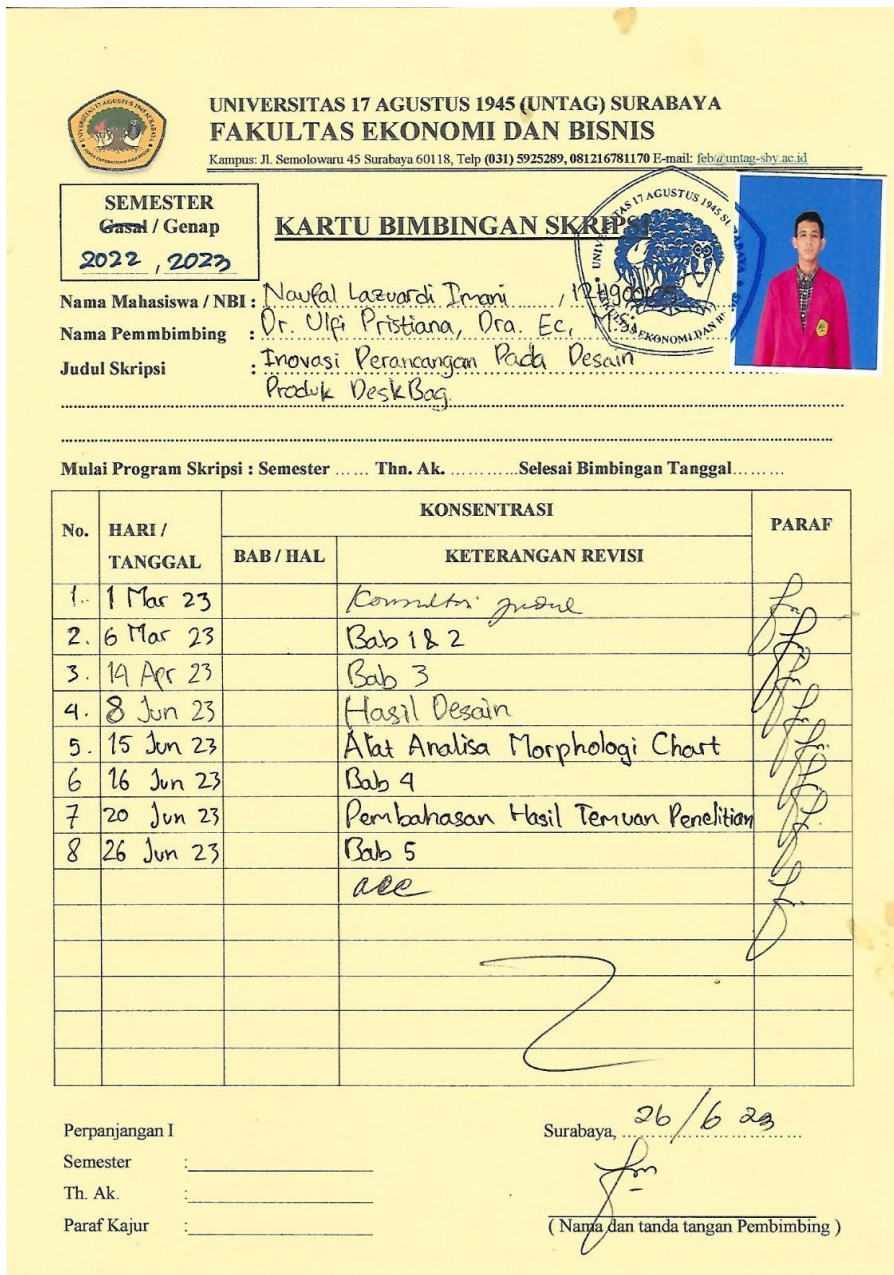 UNIVERSITAS 17 AGUSTUS 1945 (UNTAG) SURABAYA
FAKULTAS EKONOMI DAN BISNIS
Kampus: Jl. Semolowaru 45 Surabaya 60118, Telp (031) 5925289, 081216781170 E-mail: feb@untag-sby.ac.id
SEMESTER
Gasal / Genap
2022 , 2023
KARTU BIMBINGAN SKRIPSI
Nama Mahasiswa / NBI : Naufal Lazuardi Imani
Nama Pemmbimbing : Dr. Ulfi Pristiana, Dra. Ec, M.Si.
Judul Skripsi : Inovasi Perancangan Pada Desain
Produk DeskBag.
Mulai Program Skripsi : Semester ...... Thn. Ak. ............Selesai Bimbingan Tanggal........
No. HARI / TANGGAL KONSENTRASI PARAF
BAB / HAL KETERANGAN REVISI
1. 1 Mar 23 Konsultasi judul
2. 6 Mar 23 Bab 1 & 2
3. 14 Apr 23 Bab 3
4. 8 Jun 23 Hasil Desain
5. 15 Jun 23 Alat Analisa Morphologi Chart
6 16 Jun 23 Bab 4
7 20 Jun 23 Pembahasan Hasil Temuan Penelitian
8 26 Jun 23 Bab 5
acc
Perpanjangan I
Semester :
Th. Ak. :
Paraf Kajur :
Surabaya, 26/6 23
( Nama dan tanda tangan Pembimbing )